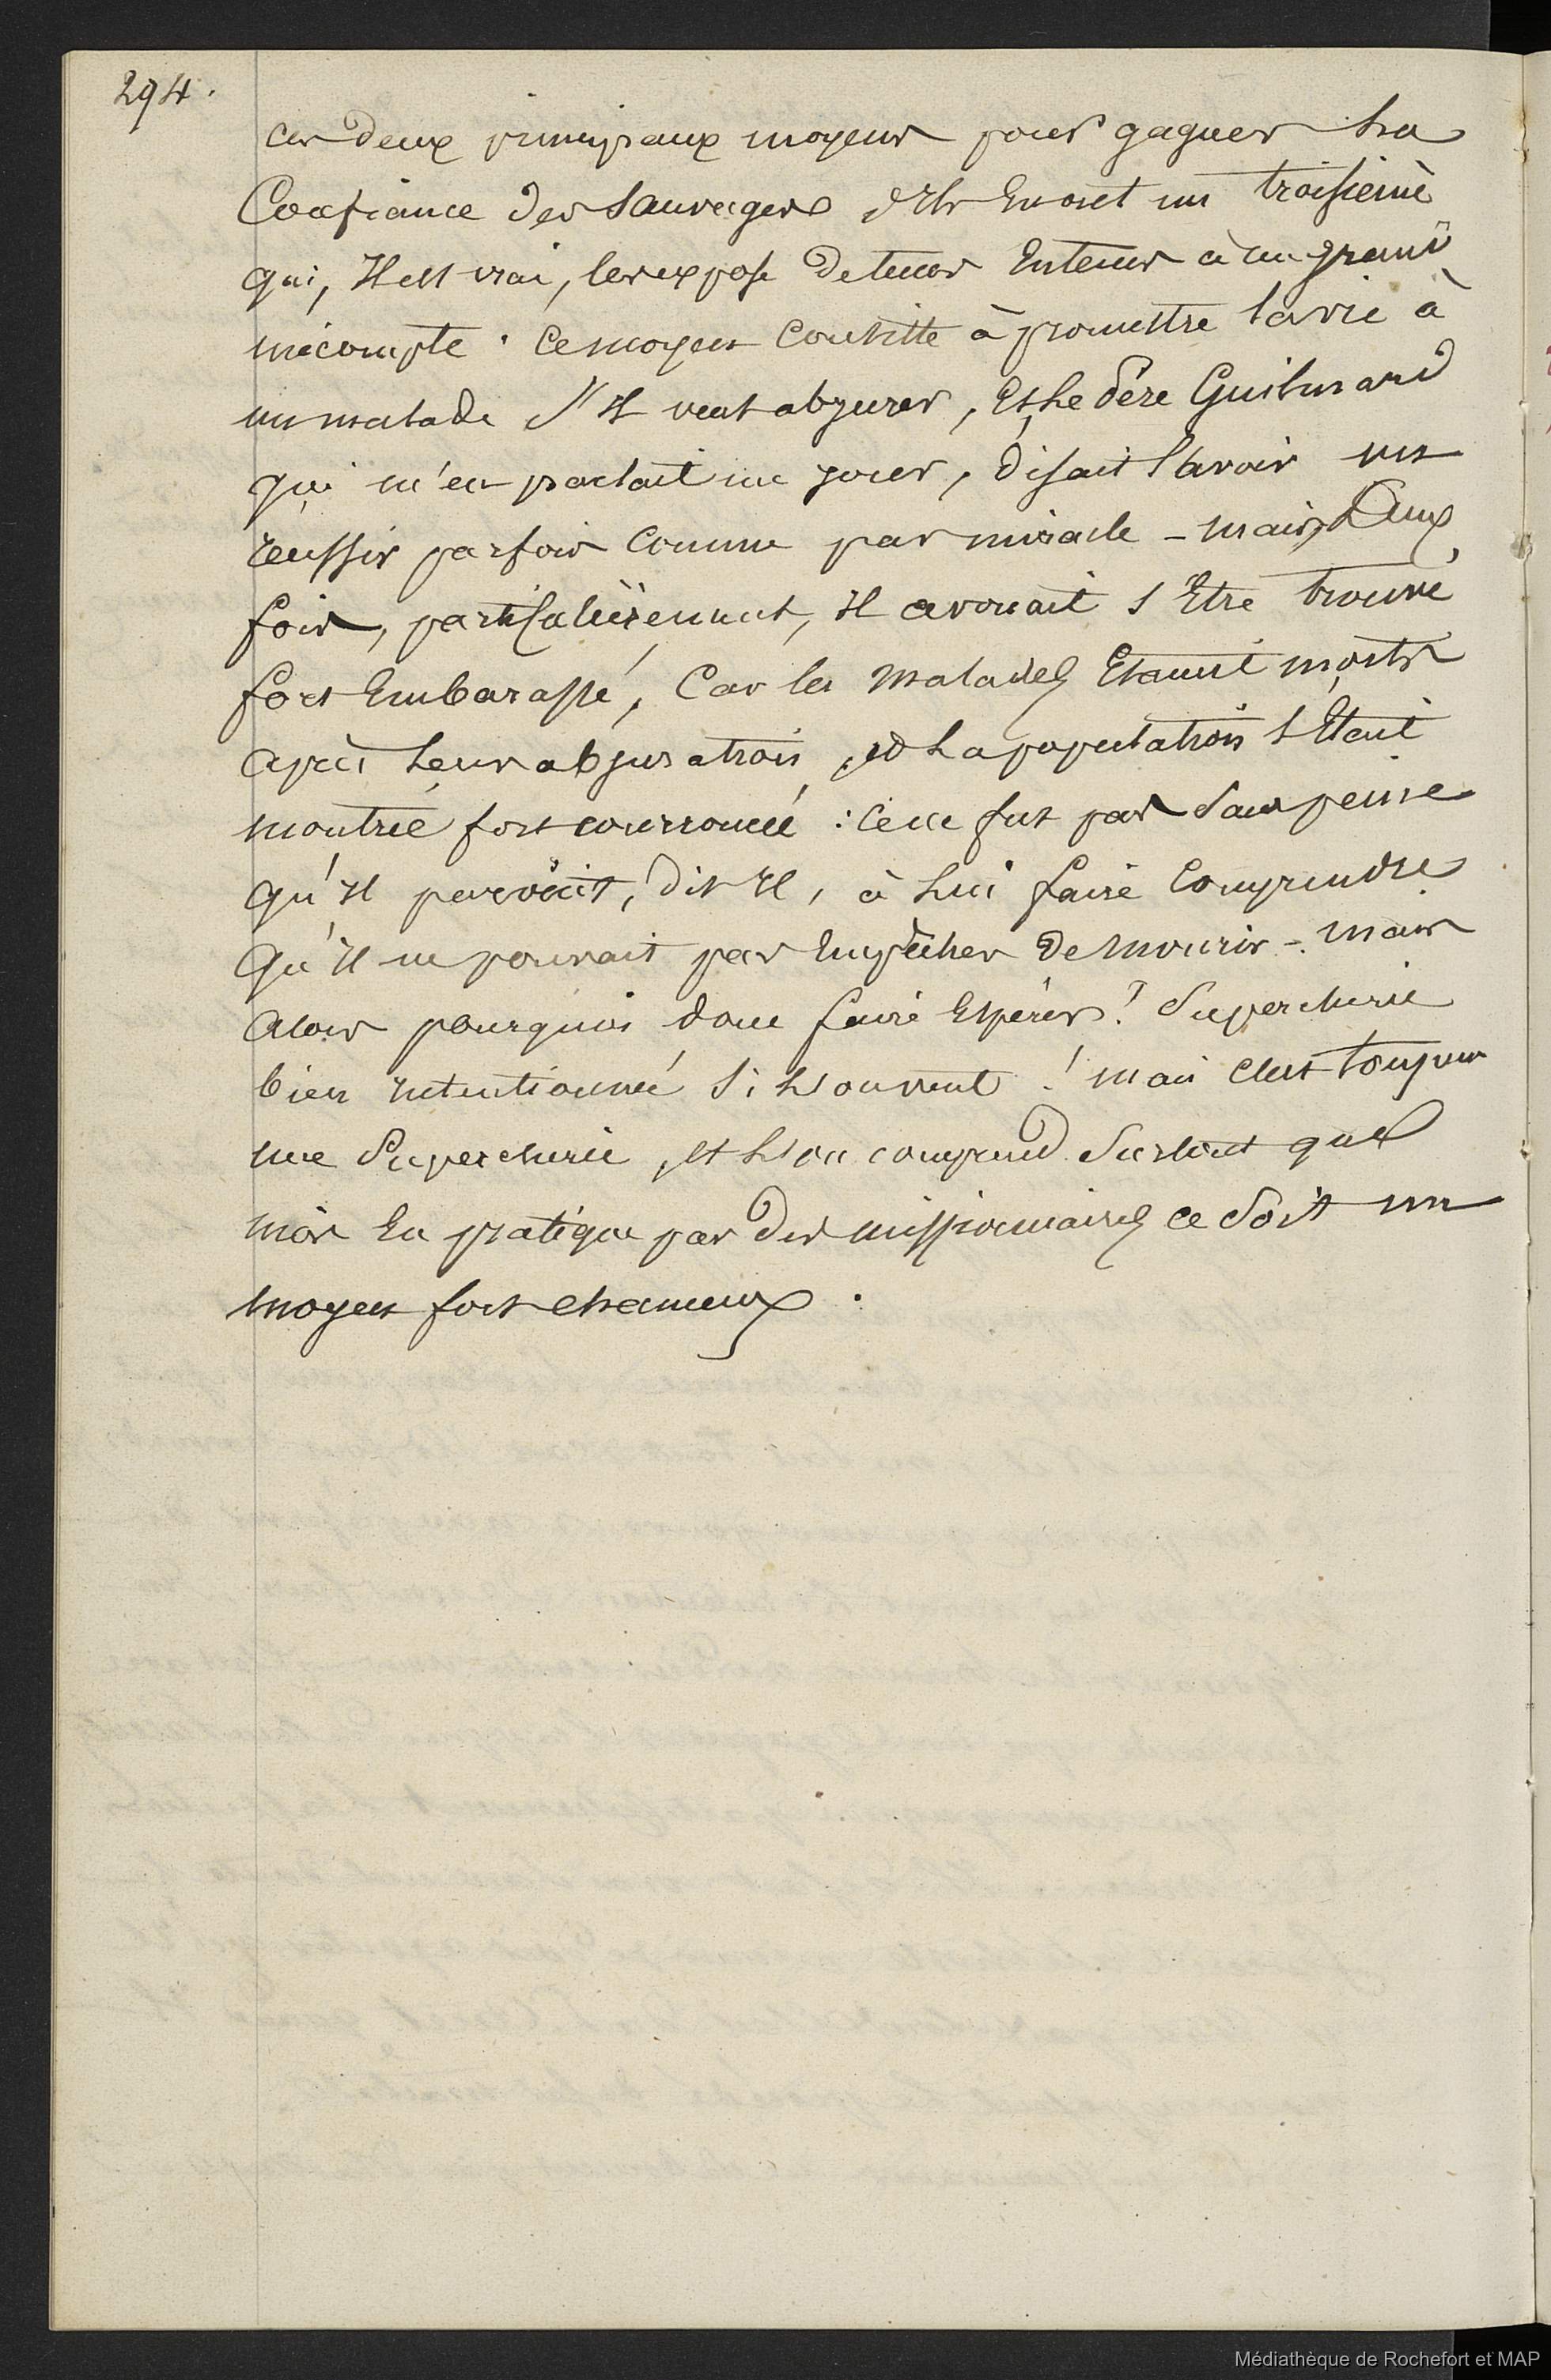 294.
ces deux principaux moyens pour gagner la
Confiance des Sauvages Ils En ont un troisième
qui, Il est vrai, les expose de tems En tems à un grand
mécompte. Ce moyen Consiste à promettre la vie à
un malade S'Il veut abjurer, Et Le Père Guilmard
qui m'en parlait un jour, disait l'avoir vu
réussir parfois Comme par miracle - mais, Deux
fois, particulièrement, Il avouait s'Etre trouvé
fort Embarassé, Car les Malades Etaient morts
après Leur abjuration, et La population s'Etait
montrée fort courroucée : Ce ne fut pas Sans peine
qu'Il parvint, dit Il, à Lui faire Comprendre
Qu'Il ne pouvait pas Empêcher De Mourir - mais
Alors pourquoi donc faire Espérer ? Supercherie
bien intentionnée Si Souvent ! mais c'est toujours
une Supercherie, et L'on comprend Surtout que
mis En pratique par des missionnaires ce Soit un
moyen fort chanceux.
Médiathèque de Rochefort et MAP